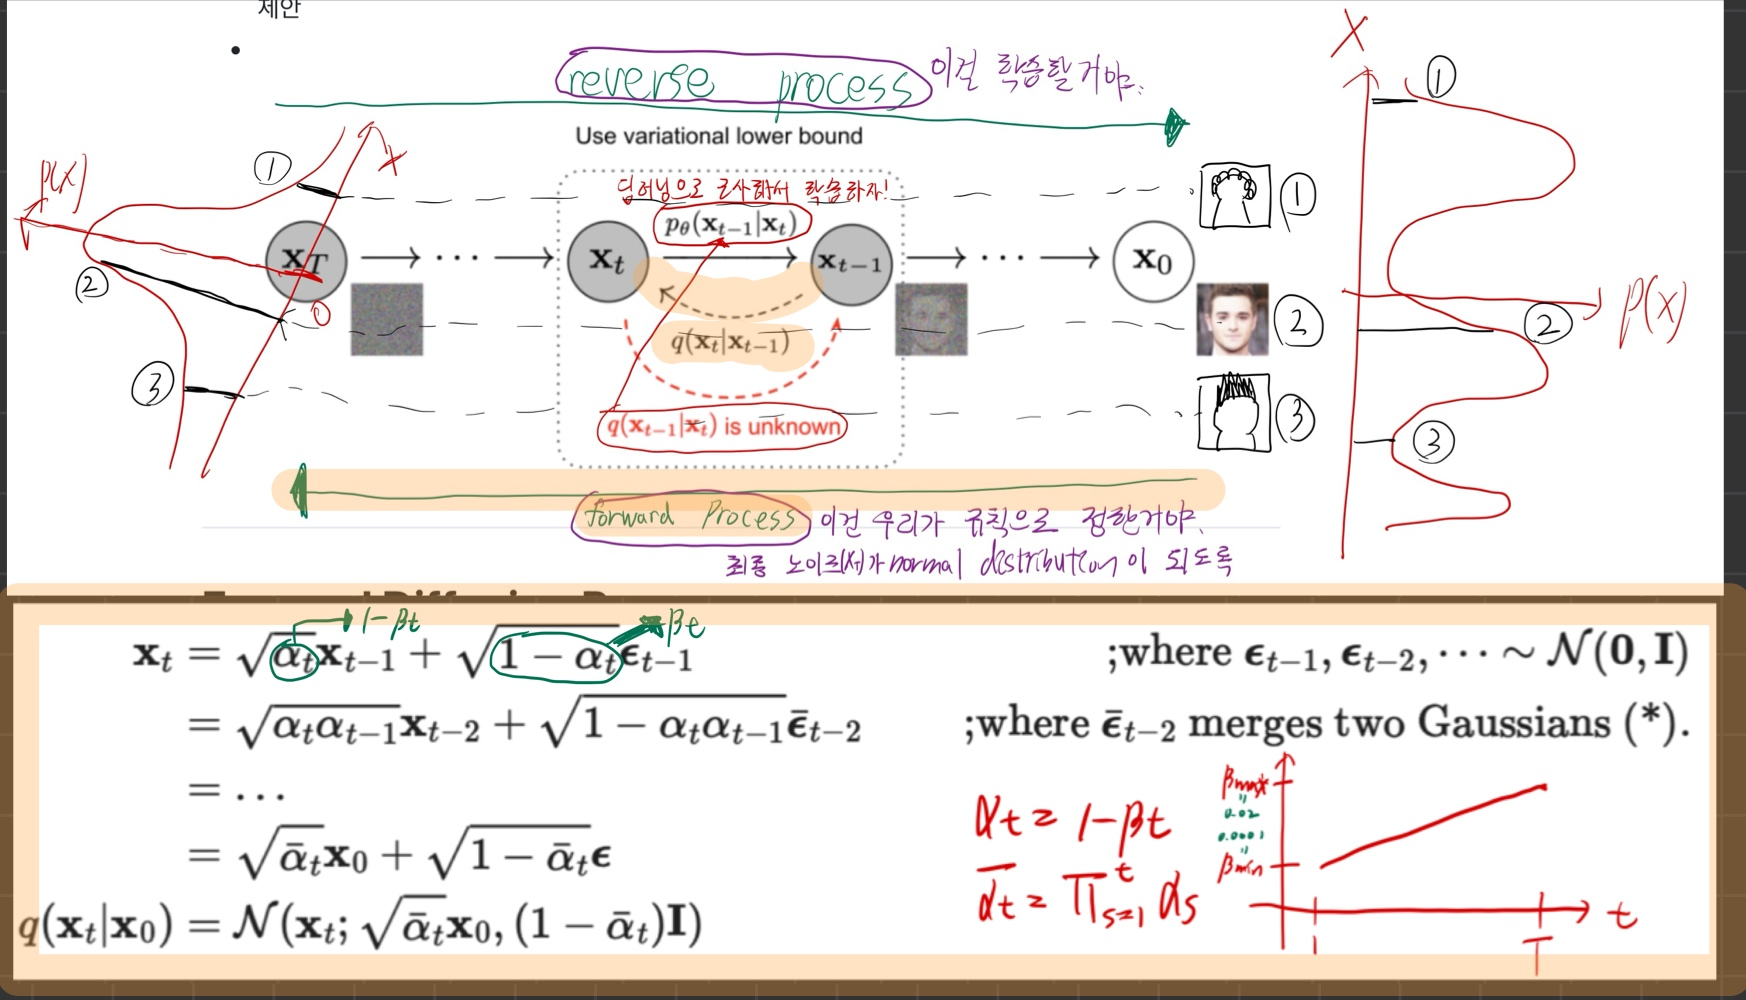 제안
reverse process 이걸 학습할거야.
Use variational lower bound
딥러닝으로 근사해서 학습하자!
X
①
p(x)
①
x
①
②
③
0
x_T → ⋯ → x_t p_θ(x_{t-1}|x_t) x_{t-1} → ⋯ → x_0
q(x_t|x_{t-1})
②
q(x_{t-1}|x_t) is unknown
③
②
p(x)
③
forward process 이건 우리가 규칙으로 정한거야.
최종 노이즈(x_T)가 normal distribution이 되도록
1-βt
βt
x_t = √α_t x_{t-1} + √(1 − α_t) ε_{t-1} ;where ε_{t-1}, ε_{t-2}, ⋯ ∼ N(0, I)
= √(α_t α_{t-1}) x_{t-2} + √(1 − α_t α_{t-1}) ε̄_{t-2} ;where ε̄_{t-2} merges two Gaussians (*).
= …
= √ᾱ_t x_0 + √(1 − ᾱ_t) ε
q(x_t|x_0) = N(x_t; √ᾱ_t x_0, (1 − ᾱ_t)I)
αt = 1-βt
ᾱt = Π_{s=1}^t αs
βmax
"
0.02
0.0001
"
βmin
t
1
T